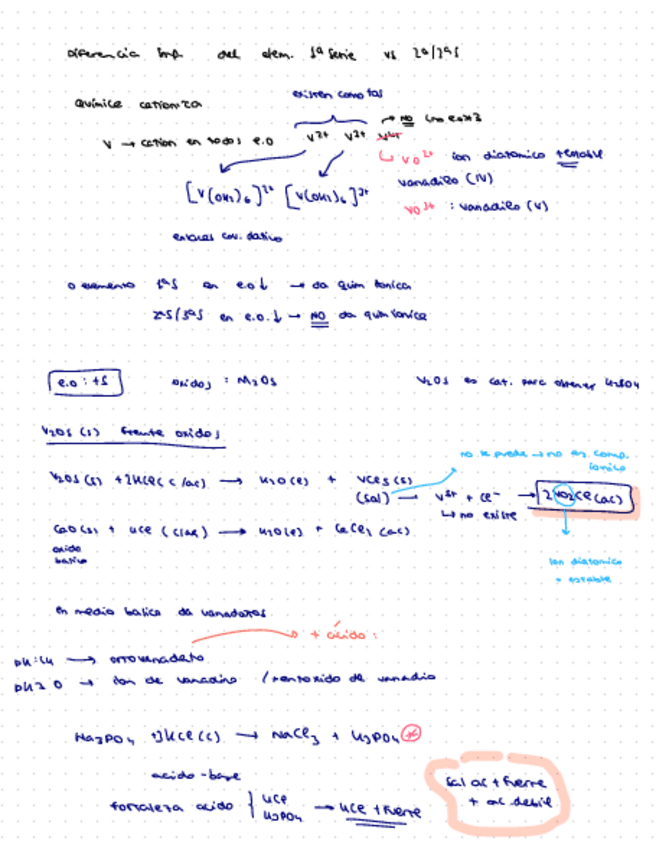 Diferencia imp. del elem. 1ª serie vs 2ª/3ªs
existen como tas
química cationica
→ NO con eox+3
V → cation en todos e.o V²⁺ V³⁺
↳ VO²⁺ ion diatomico +estable
[V(OH₂)₆]²⁺ [V(OH₂)₆]³⁺
vanadilo (IV)
VO³⁺ : vanadilo (V)
enlaces cov. dativo
o elemento 1ªS en e.o↓ → da quim ionica
2ªS/3ªS en e.o.↓ → NO da quim ionica
e.o : +5 oxidos : M₂O₅ V₂O₅ es cat. para obtener H₂SO₄
V₂O₅ (s) frente oxidos
no se puede → no es comp. ionico
V₂O₅ (s) + 2HCl (c/ac) → H₂O(l) + VCl₅(s)
(sal) → V⁵⁺ + Cl⁻ → 2VO₂Cl (ac)
↳ no existe
CaO(s) + HCl (c/ac) → H₂O(l) + CaCl₂ (ac)
oxido basico
Ion diatomico
+ estable
en medio basico da vanadatos
+ ácido :
pH:14 → ortovanadato
pH≥0 → ion de vanadino / pentoxido de vanadio
Na₃PO₄ + 3HCl(c) → NaCl₃ + H₃PO₄
acido-base
fortaleza acido { HCl H₃PO₄ → HCl +fuerte
sal ac + fuerte
+ ac. debil